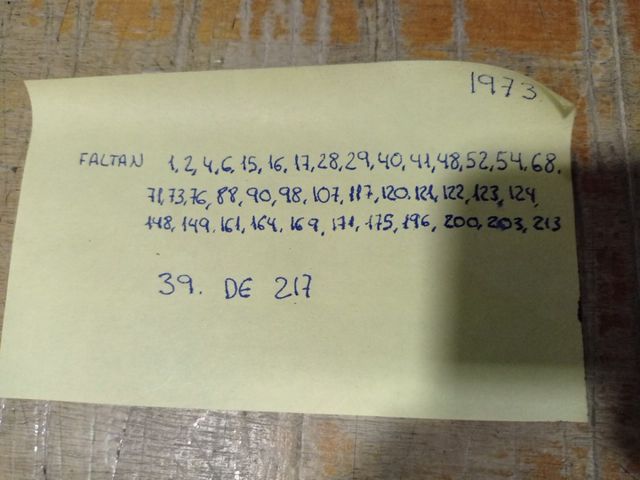 1973
FALTAN 1,2,4,6,15,16,17,28,29,40,41,48,52,54,68,
71,73,76,88,90,98,107,117,120,121,122,123,124,
148,149,161,164,169,171,175,196,200,203,213
39. DE 217